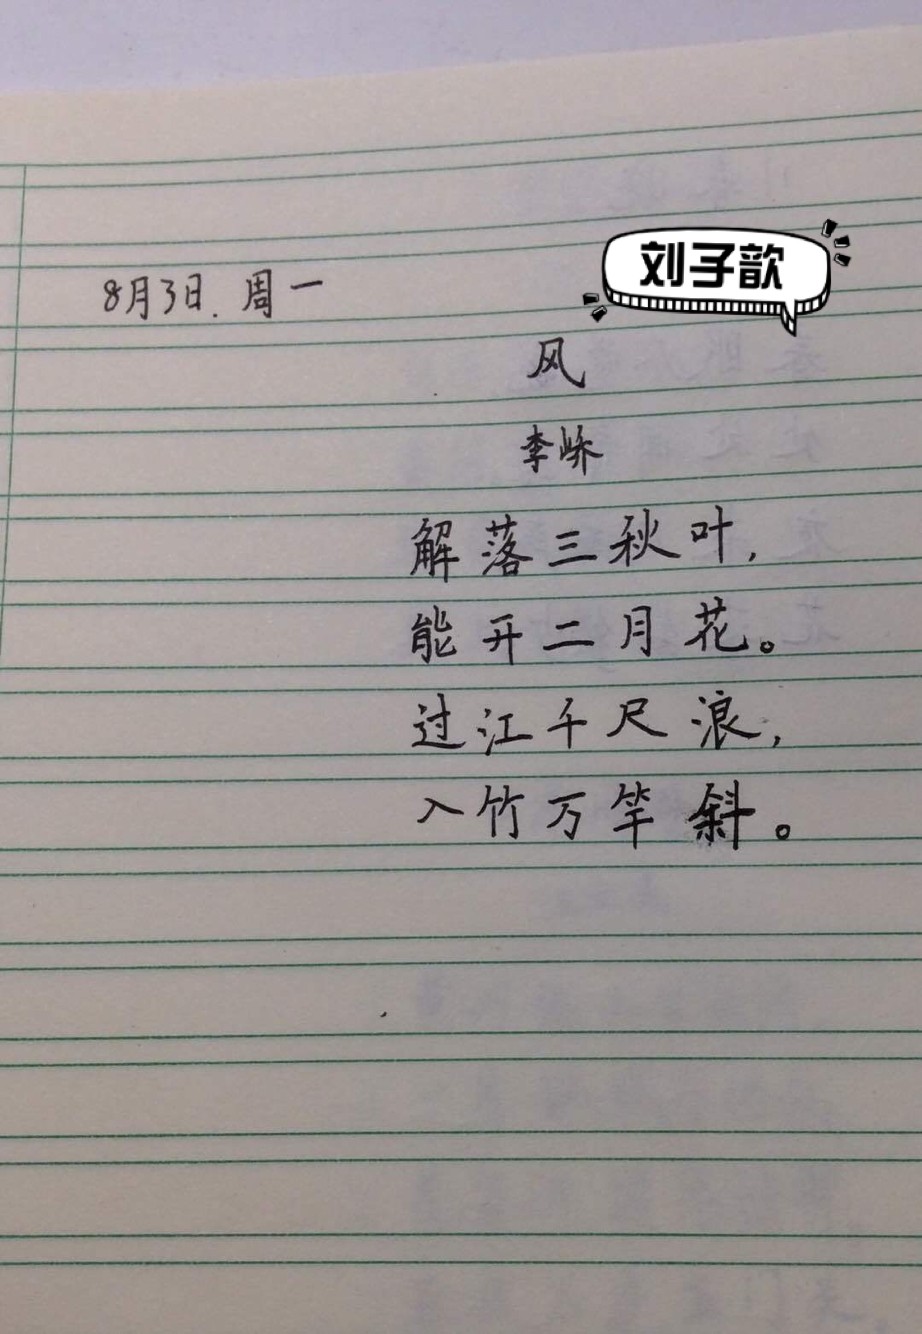 刘子歆
8月3日.周一
风
李峤
解落三秋叶,
能开二月花。
过江千尺浪,
入竹万竿斜。